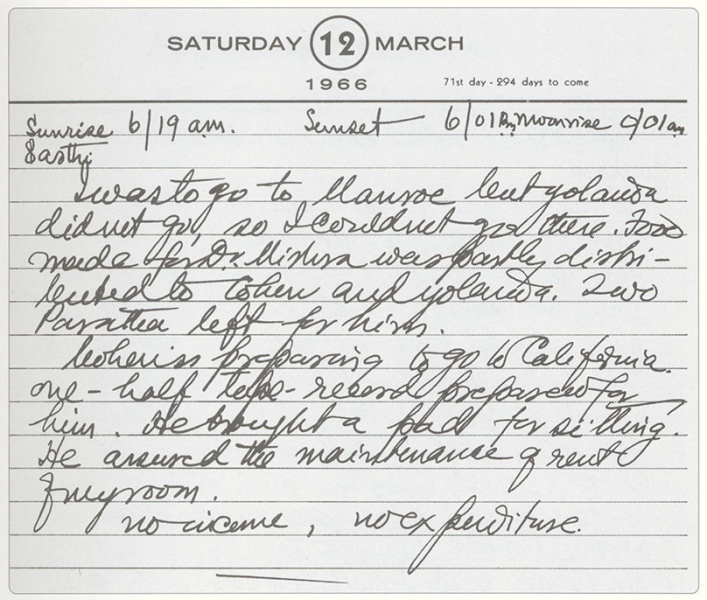 SATURDAY 12 MARCH
1966 71st day - 294 days to come
Sunrise 6/19 a.m. Sunset 6/01 Pm Moonrise 0/01 am
Sasthi
I was to go to Monroe but yolanda
did not go, so I could not go there. Food
made for Dr. Mishra was partly distri-
buted to Cohen and yolanda. Two
Paratha left for him.
Cohen is preparing to go to California.
one-half tape-record prepared for
him. He brought a pad for sitting.
He assured the maintenance of rent
of my room.
no income, no expenditure.